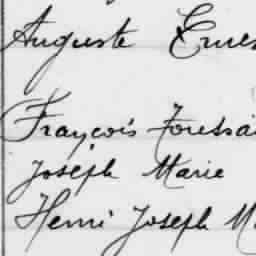 Auguste Ernes
François Toussai
Joseph Marie
Henri Joseph M